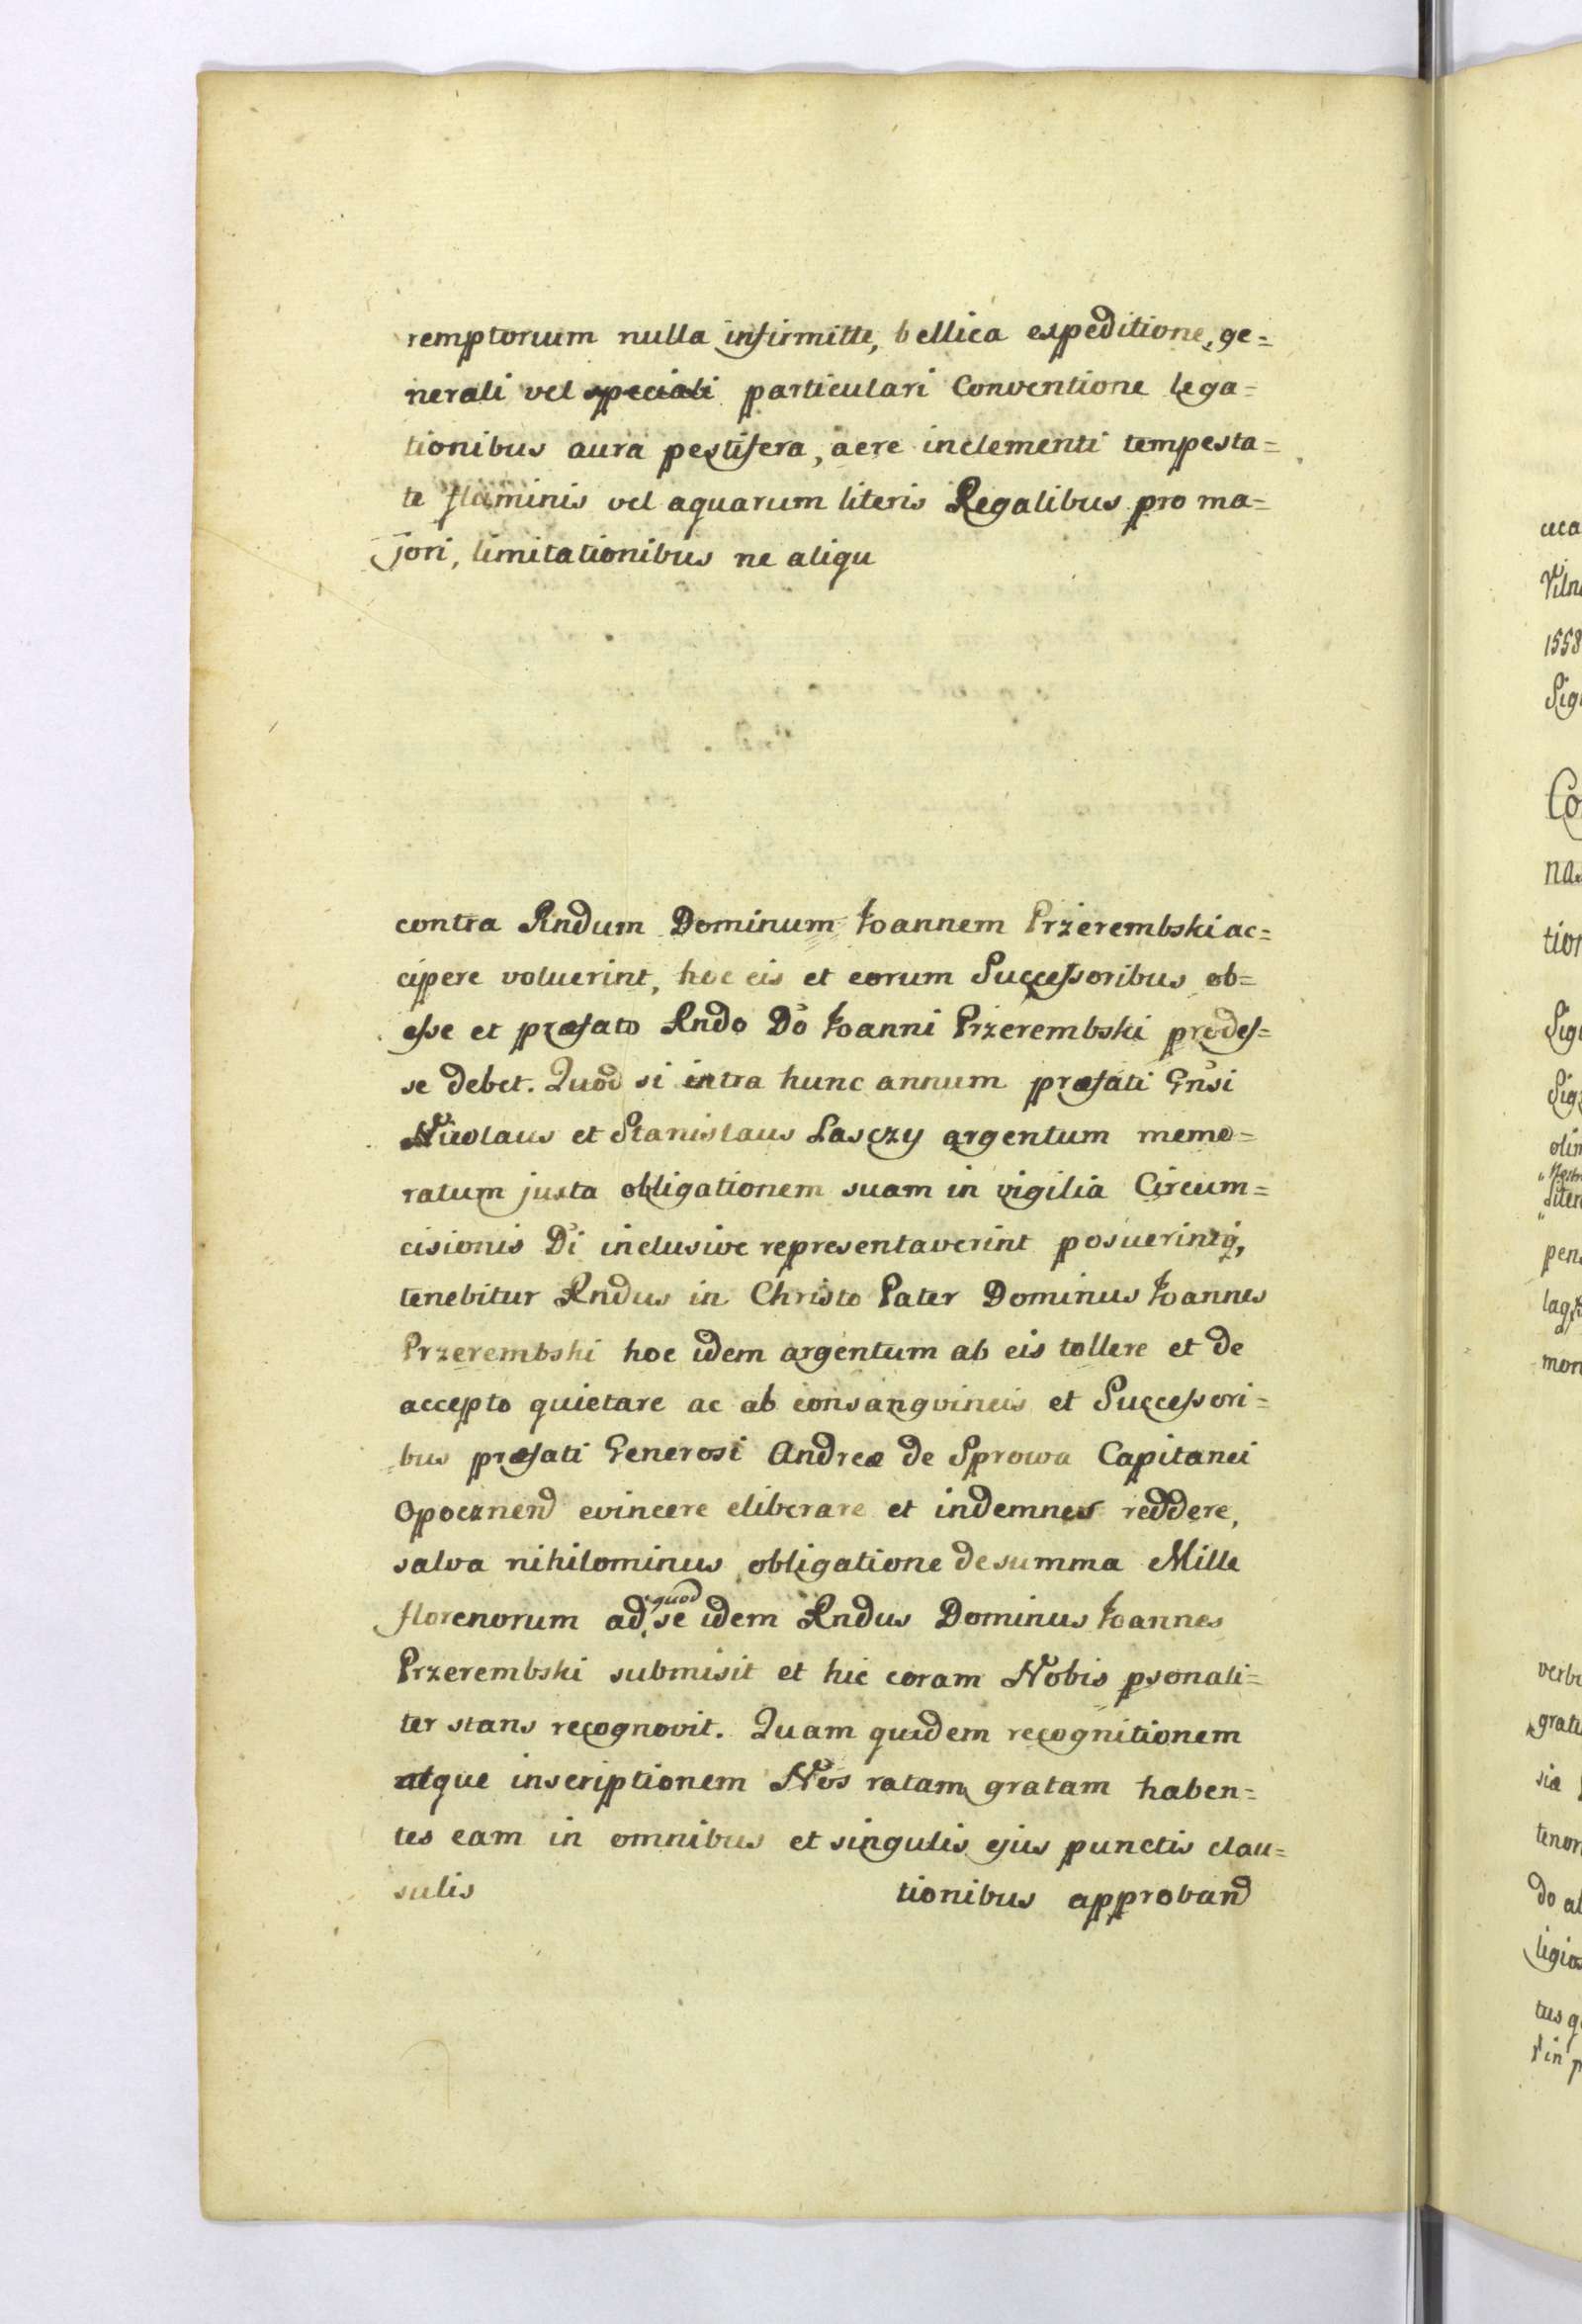 remptorium nulla infirmitte, bellica expeditione, ge=
nerali vel speciali particulari Conventione lega=
tionibus aura pestifera, aere inclementi tempesta=
te fluminis vel aquarum literis Regalibus pro ma=
jori, limitationibus ne aliqu
contra Rndum Dominum Joannem Przerembski ac=
cipere voluerint, hoc eis et eorum Successoribus ob=
esse et præfato Rndo Do Joanni Przerembski prodes=
se debet. Quod si intra hunc annum præfati Gnsi
Nicolaus et Stanislaus Lasczy argentum memo=
ratum juxta obligationem suam in vigilia Circum=
cisionis Di inclusive representaverint posuerintq,
tenebitur Rndus in Christo Pater Dominus Joannes
Przerembski hoc idem argentum ab eis tollere et de
accepto quietare ac ab consangvineis et Successori=
bus præfati Generosi Andreæ de Sprowa Capitanei
Opocznen evincere eliberare et indemnes reddere,
salva nihilominus obligatione de summa Mille
florenorum ad quod se idem Rndus Dominus Joannes
Przerembski submisit et hic coram Nobis psonali=
ter stans recognovit. Quam quidem recognitionem
atque inscriptionem Nos ratam gratam haben=
tes eam in omnibus et singulis ejus punctis clau=
sulis tionibus approband
Viln
1558
Sig
Co
na
tion
Sig
Sig
olim
pen
lag
mon
verb
grat
sia
tenor
do al
ligio
tus q
in p